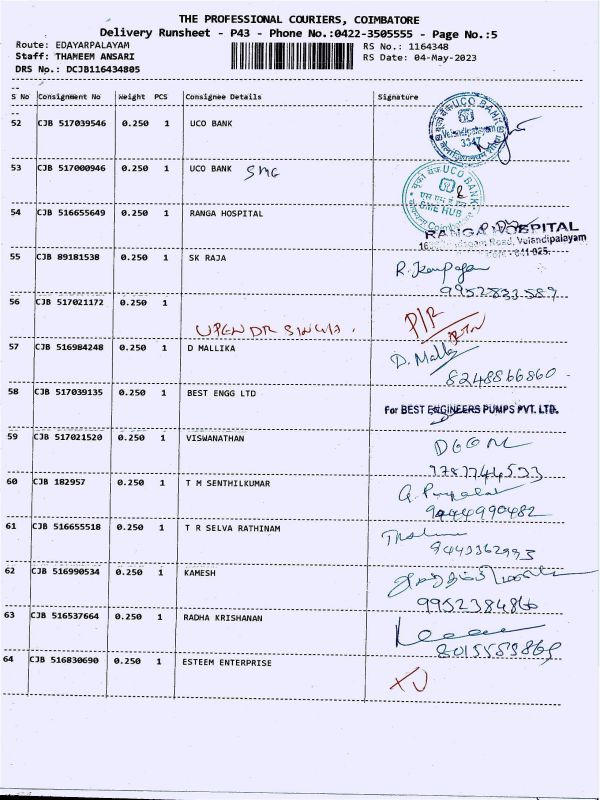 THE PROFESSIONAL COURIERS, COIMBATORE
Delivery Runsheet - P43 - Phone No.:0422-3505555 - Page No.:5
Route: EDAYARPALAYAM RS No.: 1164348
Staff: THAMEEM ANSARI RS Date: 04-May-2023
DRS No.: DCJB116434805
S No Consignment No Weight PCS Consignee Details Signature
52 CJB 517039546 0.250 1 UCO BANK
UCO BANK
Velandipalayam
3347
53 CJB 517000946 0.250 1 UCO BANK SMG
UCO BANK
SME HUB
Coimbatore
54 CJB 516655649 0.250 1 RANGA HOSPITAL
RANGA HOSPITAL
Road, Velandipalayam
641 025.
55 CJB 89181538 0.250 1 SK RAJA
R.
56 CJB 517021172 0.250 1
P/R
57 CJB 516984248 0.250 1 D MALLIKA D. Malli
8248866860
58 CJB 517039135 0.250 1 BEST ENGG LTD
For BEST ENGINEERS PUMPS PVT. LTD.
59 CJB 517021520 0.250 1 VISWANATHAN
60 CJB 182957 0.250 1 T M SENTHILKUMAR
9444990482
61 CJB 516655518 0.250 1 T R SELVA RATHINAM
9443362993
62 CJB 516990534 0.250 1 KAMESH
9952384866
63 CJB 516537664 0.250 1 RADHA KRISHANAN
64 CJB 516830690 0.250 1 ESTEEM ENTERPRISE